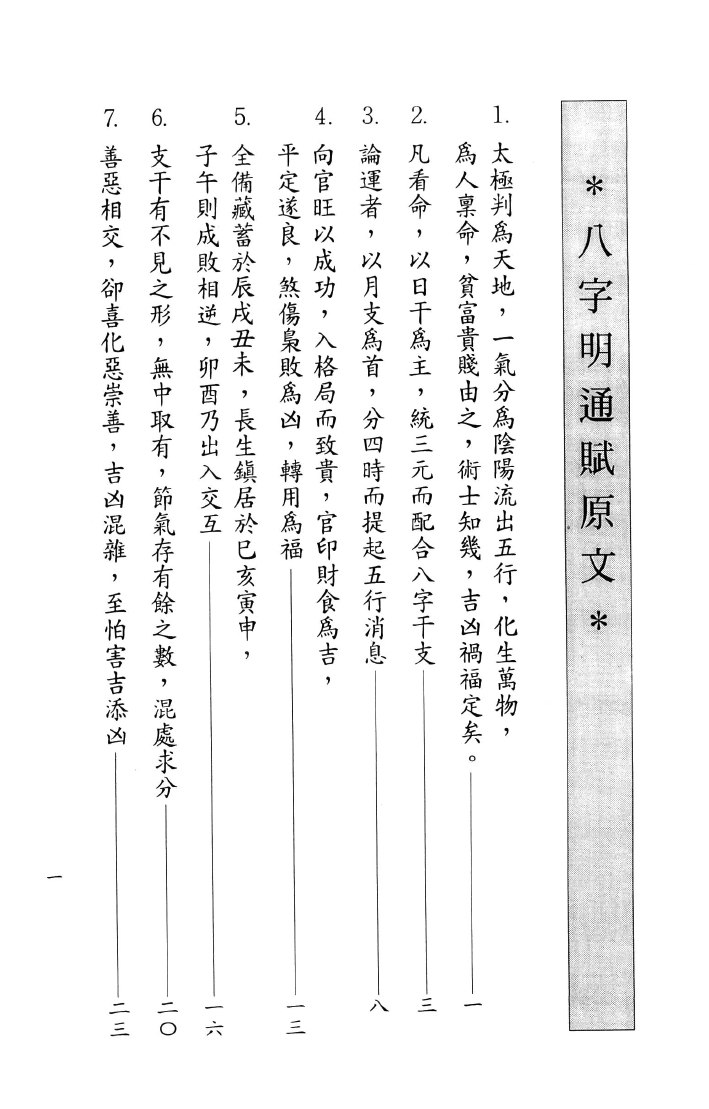 ＊八字明通賦原文＊
1. 太極判爲天地，一氣分爲陰陽流出五行，化生萬物，
爲人稟命，貧富貴賤由之，術士知幾，吉凶禍福定矣。一
2. 凡看命，以日干爲主，統三元而配合八字干支三
3. 論運者，以月支爲首，分四時而提起五行消息八
4. 向官旺以成功，入格局而致貴，官印財食爲吉，
平定遂良，煞傷梟敗爲凶，轉用爲福一三
5. 全備藏蓄於辰戌丑未，長生鎮居於巳亥寅申，
子午則成敗相逆，卯酉乃出入交互一六
6. 支干有不見之形，無中取有，節氣存有餘之數，混處求分二〇
7. 善惡相交，卻喜化惡崇善，吉凶混雜，至怕害吉添凶二三
一